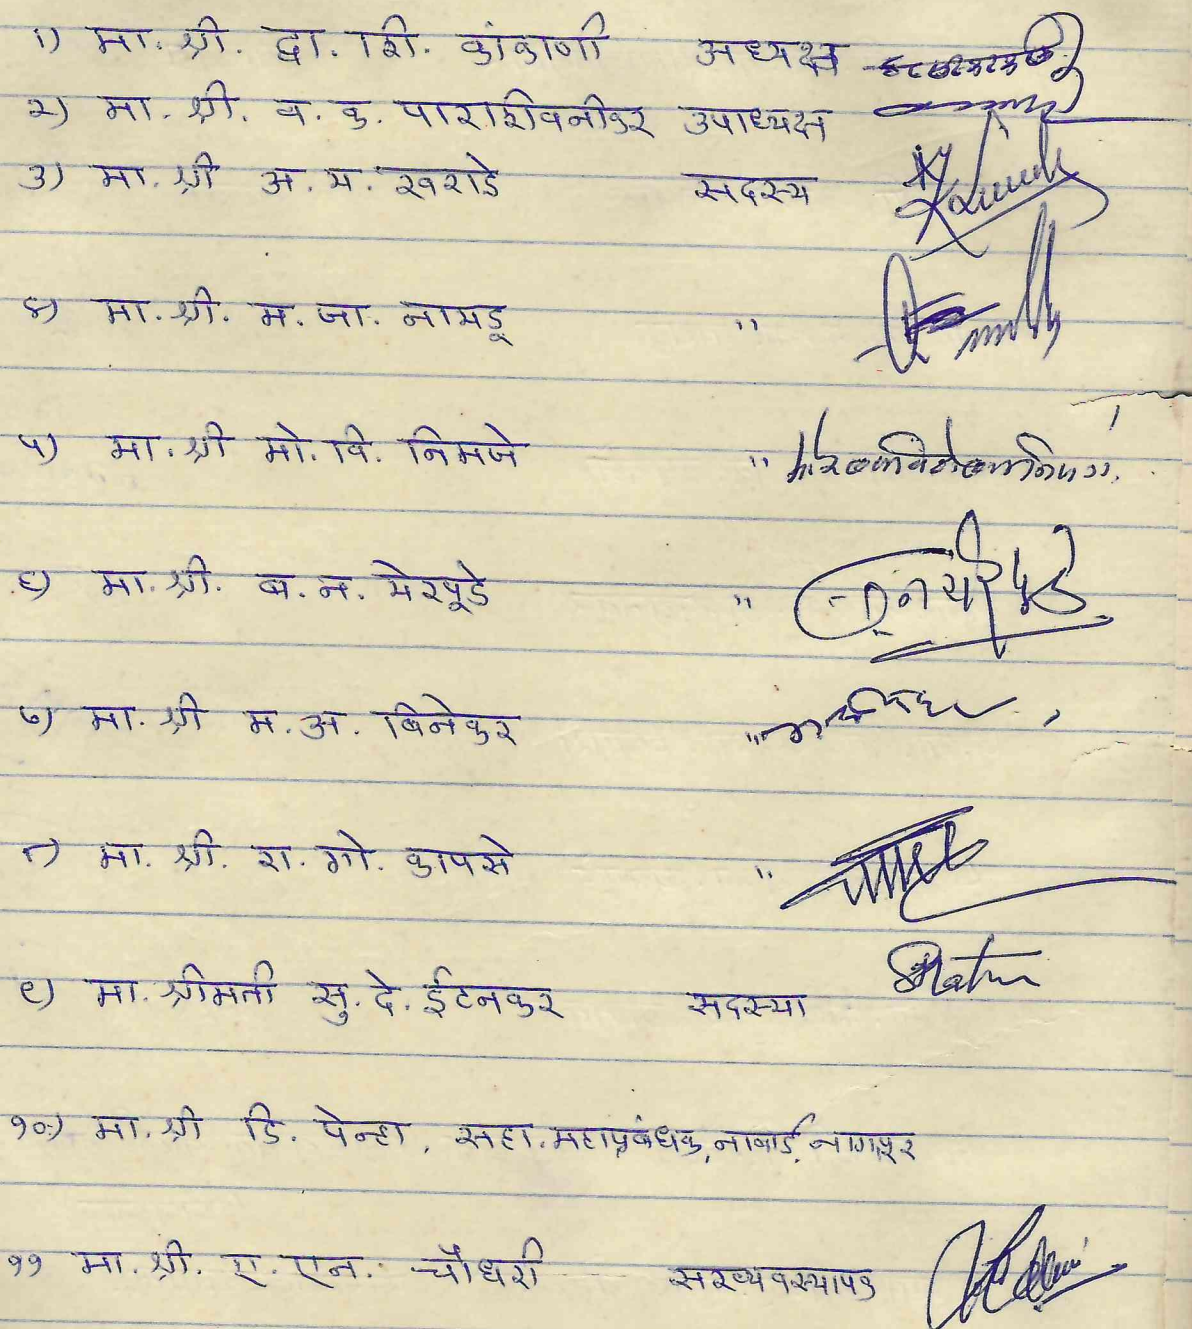 १) मा. श्री. द्वा. शि. कांकाणी अध्यक्ष
२) मा. श्री. व. कु. पाराशिवनीकर उपाध्यक्ष
३) मा. श्री अ. म. खराडे सदस्य
४) मा. श्री. म. जा. नायडू "
५) मा. श्री मो. वि. निमजे "
६) मा. श्री. ब. न. येरपूडे "
७) मा. श्री म. अ. बिनेकर "
८) मा. श्री. रा. गो. कापसे "
९) मा. श्रीमती सु. दे. ईटनकर सदस्या
१०) मा. श्री डि. पेन्हा, सहा. महाप्रबंधक, नाबार्ड, नागपूर
११ मा. श्री. ए. एन. चौधरी सरव्यवस्थापक